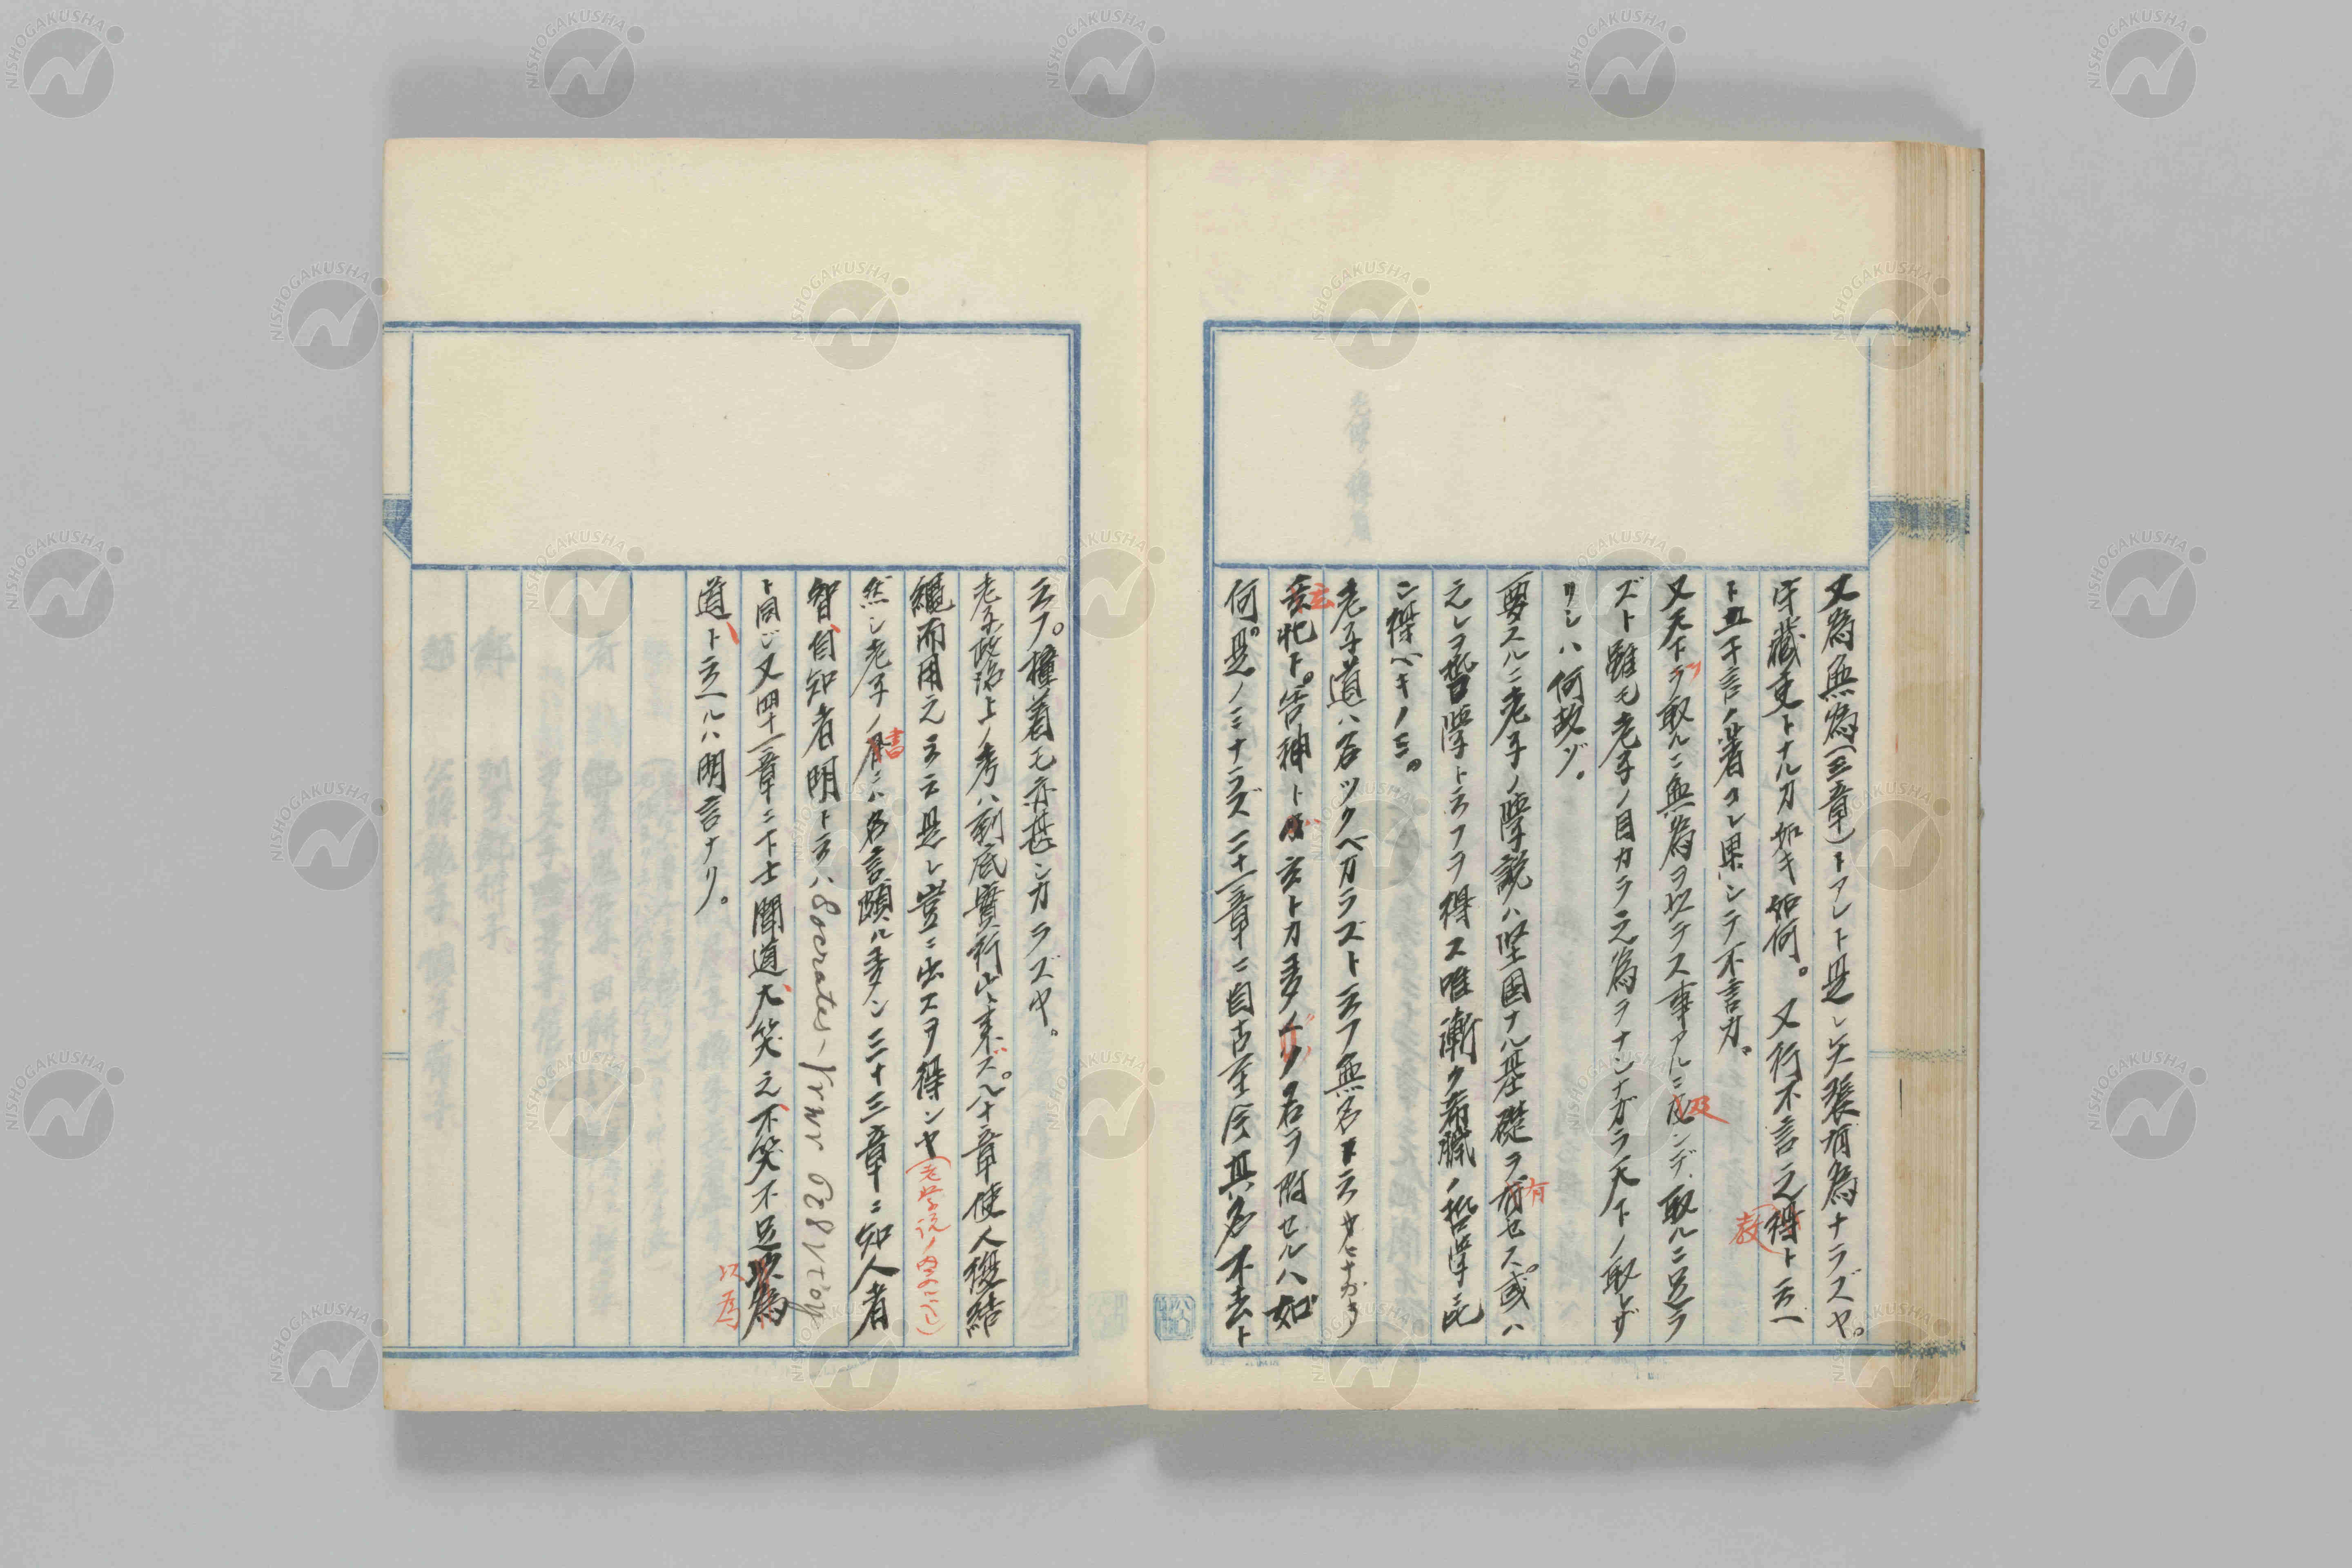 又為無為(三章)トアレト是レ矢張有為ナラズヤ。
守蔵吏トナル刀如キ如何。又行不言之得ト云ヘ
教
ト五千言ノ著アレ果シテ不言カ。
又天下ヲ取ルニ無為ヲ以テス事アルニ及ンデ取ルニ足ラ
ズト雖モ老子ノ自カラ之為ヲナシナガラ天下ノ取レザ
リシハ何故ゾ。
要スルニ老子ノ学説ハ堅固ナル基礎ヲ有セス。或ハ
有
之レヲ哲学ト云フヲ得ス唯漸ク希臘ノ哲学ニ比
シ得ベキノミ。
老子道ハ名ツクベカラズト云フ無名ト云
玄
玄牝ト。谷神ト玄トカ多ク名ヲ附セルハ如
何。是ノミナラズ二十一章ニ自古至今其名不去ト
云フ。撞着モ亦甚シカラズヤ。
老子政治上ノ考ハ到底実行出来ズ。八十章使人復結
縄而用之云云是レ豈ニ出ヌヲ得ンヤ
然シ老子ノ書ニハ名言頗ル多シ三十三章ニ知人者
智自知者明ト云ハSocrates
ト同じ又四十一章ニ下士聞道大笑之不笑不足以為
以為
道ト云ヘルハ明言ナリ。
NISHOGAKUSHA